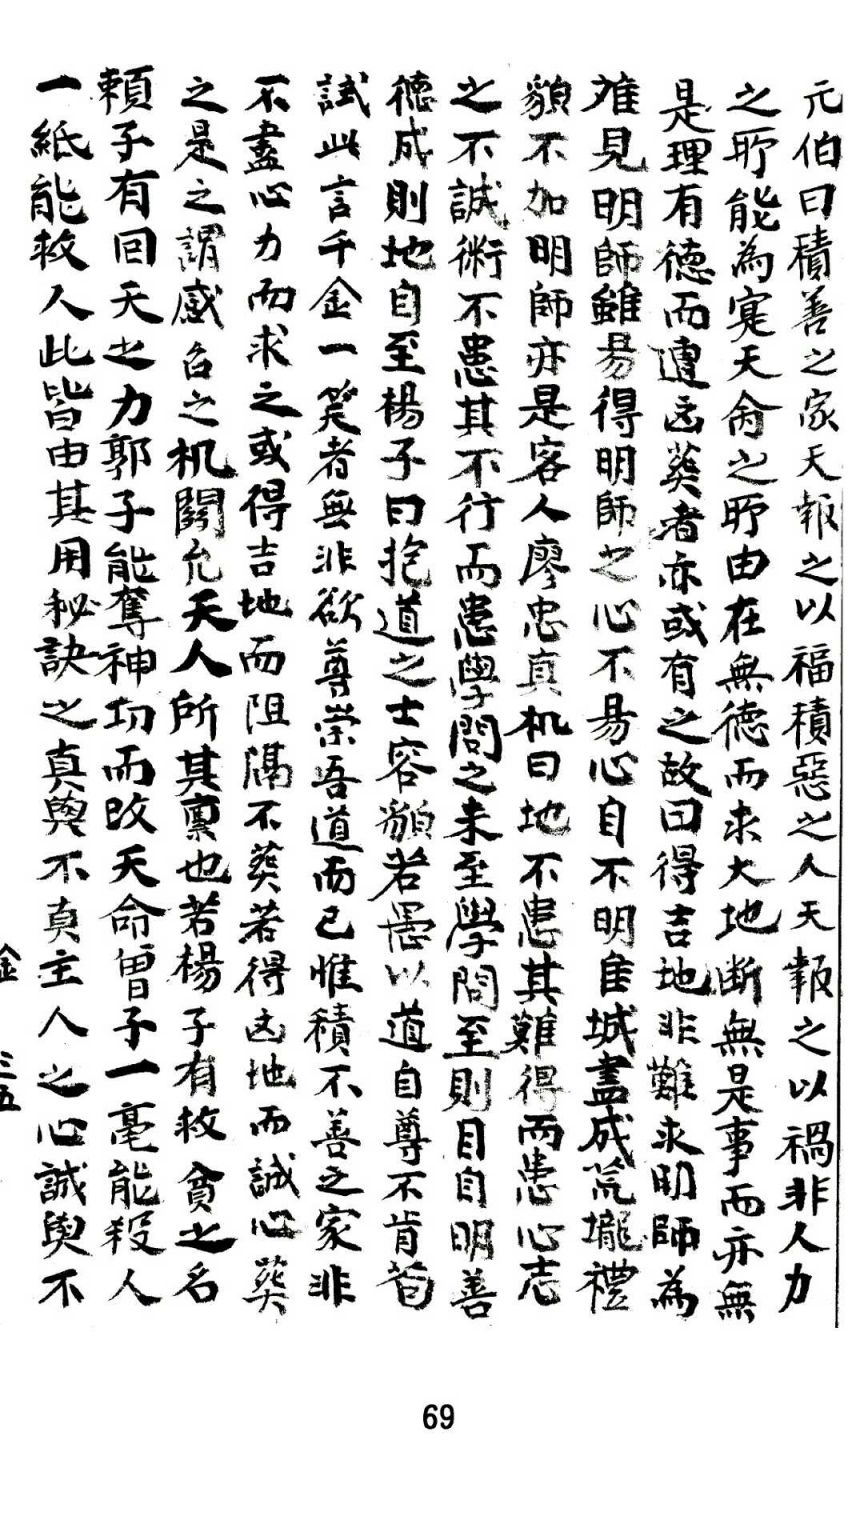 元伯曰積善之家天報之以福積惡之人天報之以禍非人力
之所能為寔天命之所由在無德而求大地断無是事而亦無
是理有德而遭凶葬者亦或有之故曰得吉地非難求明師為
难見明師雖易得明師之心不易心自不明隹城盡成荒壠禮
貌不加明師亦是客人廖忠真机曰地不患其難得而患心志
之不誠術不患其不行而患學問之未至學問至則目自明善
德成則地自至楊子曰抱道之士容貌若愚以道自尊不肯苟
試此言千金一笑者無非欲尊崇吾道而已惟積不善之家非
不盡心力而求之或得吉地而阻隔不葬若得凶地而誠心葬
之是之謂感召之机關允天人所其稟也若楊子有救貧之名
頼子有回天之力郭子能奪神功而改天命曾子一毫能殺人
一紙能救人此皆由其用秘訣之真與不真主人之心誠與不
金 三五
69